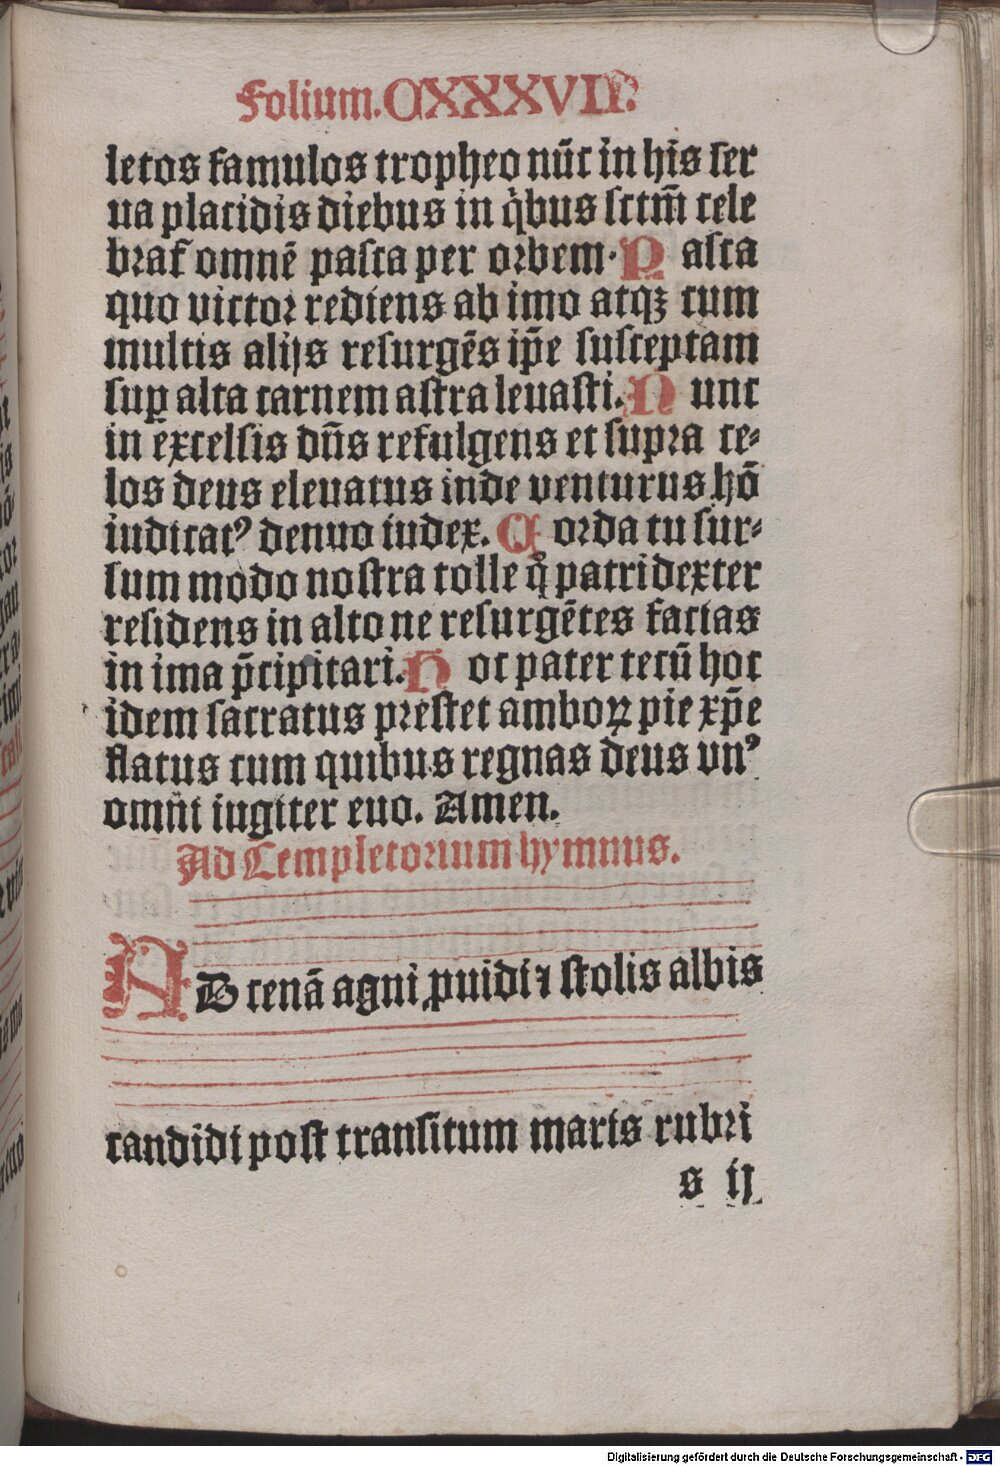 Folium. CXXXVII.
letos famulos tropheo nūc in his ser
ua placidis diebus in q̇bus sctm̄ cele
brat omnē pasca per orbem. P asca
quo victor rediens ab imo atqꝫ cum
multis alijs resurgēs ip̄e susceptam
suꝑ alta carnem astra leuasti. N unc
in excelsis dn̄s refulgens et supra ce-
los deus eleuatus inde venturus hō
iudicatꝰ denuo iudex. C orda tu sur-
sum modo nostra tolle q̊ patri dexter
residens in alto ne resurgētes facias
in ima p̄cipitari. H oc pater tecū hoc
idem sacratus prestet amboꝝ pie xp̄e
flatus cum quibus regnas deus vnꝰ
omni iugiter euo. Amen.
Ad Completorium hymnus.
AD cenā agni ꝓuidi ⁊ stolis albis
candidi post transitum maris rubri
s ij
Digitalisierung gefördert durch die Deutsche Forschungsgemeinschaft - DFG